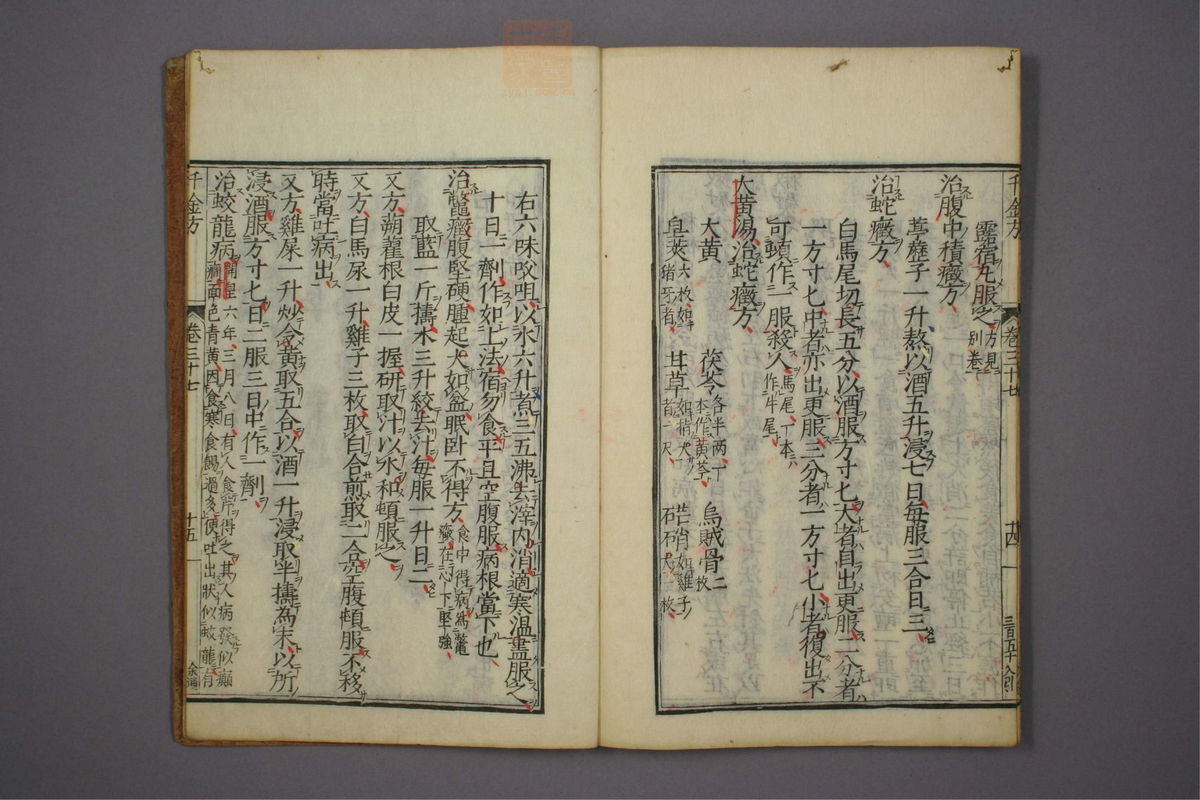 靈宿丸服之方見別卷
治腹中積癥方
葶藶子一升熬以酒五升浸七日每服三合日三
治蛇癥方
白馬尾切長五分以酒服方寸七大者自出更服二分者
一方寸七中者亦出更服三分者一方寸七小者復出不
可頓作一服殺人馬尾一本作牛尾
大黃湯治蛇癥方
大黃 茯苓各半兩一本作黃芩 烏賊骨二枚
皂莢六枚如猪牙者 甘草如指大者一尺 芒消如雞子一枚
千金方 卷三十七 十四
右六味㕮咀以水六升煮三五沸去滓內消適寒溫盡服之
十日一劑作如上法宿勿食平旦空腹服病根當下也
治鼈癥腹堅硬腫起大如盤眠臥不得方食中得病為鼈癥在心下堅強
取藍一斤擣水三升絞去汁每服一升日二
又方蒴藋根白皮一握研取汁以水和頓服之
又方白馬尿一升雞子三枚取白合煎取二合空腹頓服不移
時當吐病出
又方雞屎一升炒令黃取五合以酒一升浸取半擣為末以所
浸酒服方寸七日二服三日中作一劑
治蛟龍病開皇六年三月八日有人食芹得之其人病發似癲癇面色青黃因食寒食餳過多便吐出狀似蛟龍有
千金方 卷三十七 十五